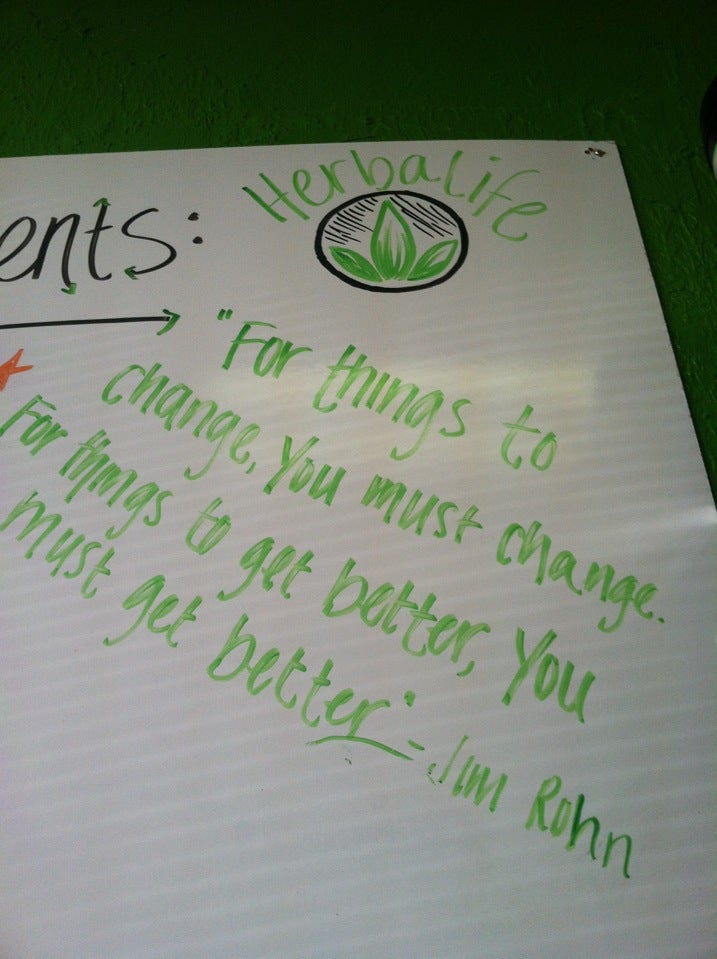 Herbalife
ents:
"For things to
change, You must change.
For things to get better, You
must get better" - Jim Rohn